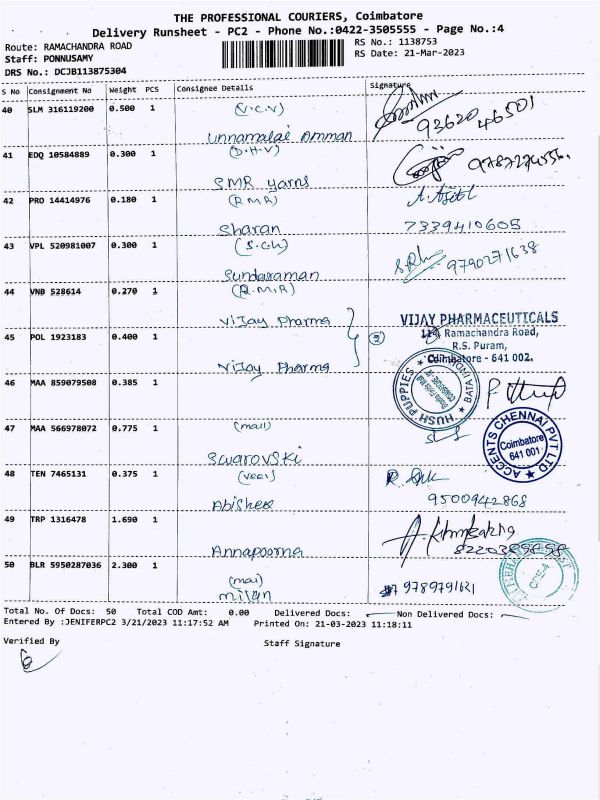 THE PROFESSIONAL COURIERS, Coimbatore
Delivery Runsheet - PC2 - Phone No.:0422-3505555 - Page No.:4
Route: RAMACHANDRA ROAD
RS No.: 1138753
Staff: PONNUSAMY
RS Date: 21-Mar-2023
DRS No.: DCJB113875304
S No Consignment No Weight PCS Consignee Details Signature
40 SLM 316119200 0.500 1 (V.C.V)
Unnamalai Amman 93620 46501
41 EDQ 10584889 0.300 1 (D.H.V)
SMR yarns
42 PRO 14414976 0.180 1 (R.M.R)
Sharan 7339410605
43 VPL 520981007 0.300 1 (S.Ch)
Sundaraman 9790271638
44 VNB 528614 0.270 1 (R.M.R)
Vijay Pharma
VIJAY PHARMACEUTICALS
Ramachandra Road,
R.S. Puram,
Coimbatore - 641 002.
45 POL 1923183 0.400 1
Vijay Pharma
46 MAA 859079508 0.385 1
HUSH PUPPIES * BATA INDIA
47 MAA 566978072 0.775 1 (mail)
Swarovski
ACCENTS CHENNAI PVT LTD
Coimbatore
641 001
48 TEN 7465131 0.375 1
Abishek 9500942868
49 TRP 1316478 1.690 1
Annapoorna
50 BLR 5950287036 2.300 1 (mai)
Milan
Total No. Of Docs: 50 Total COD Amt: 0.00 Delivered Docs: Non Delivered Docs:
Entered By :JENIFERPC2 3/21/2023 11:17:52 AM Printed On: 21-03-2023 11:18:11
Verified By Staff Signature